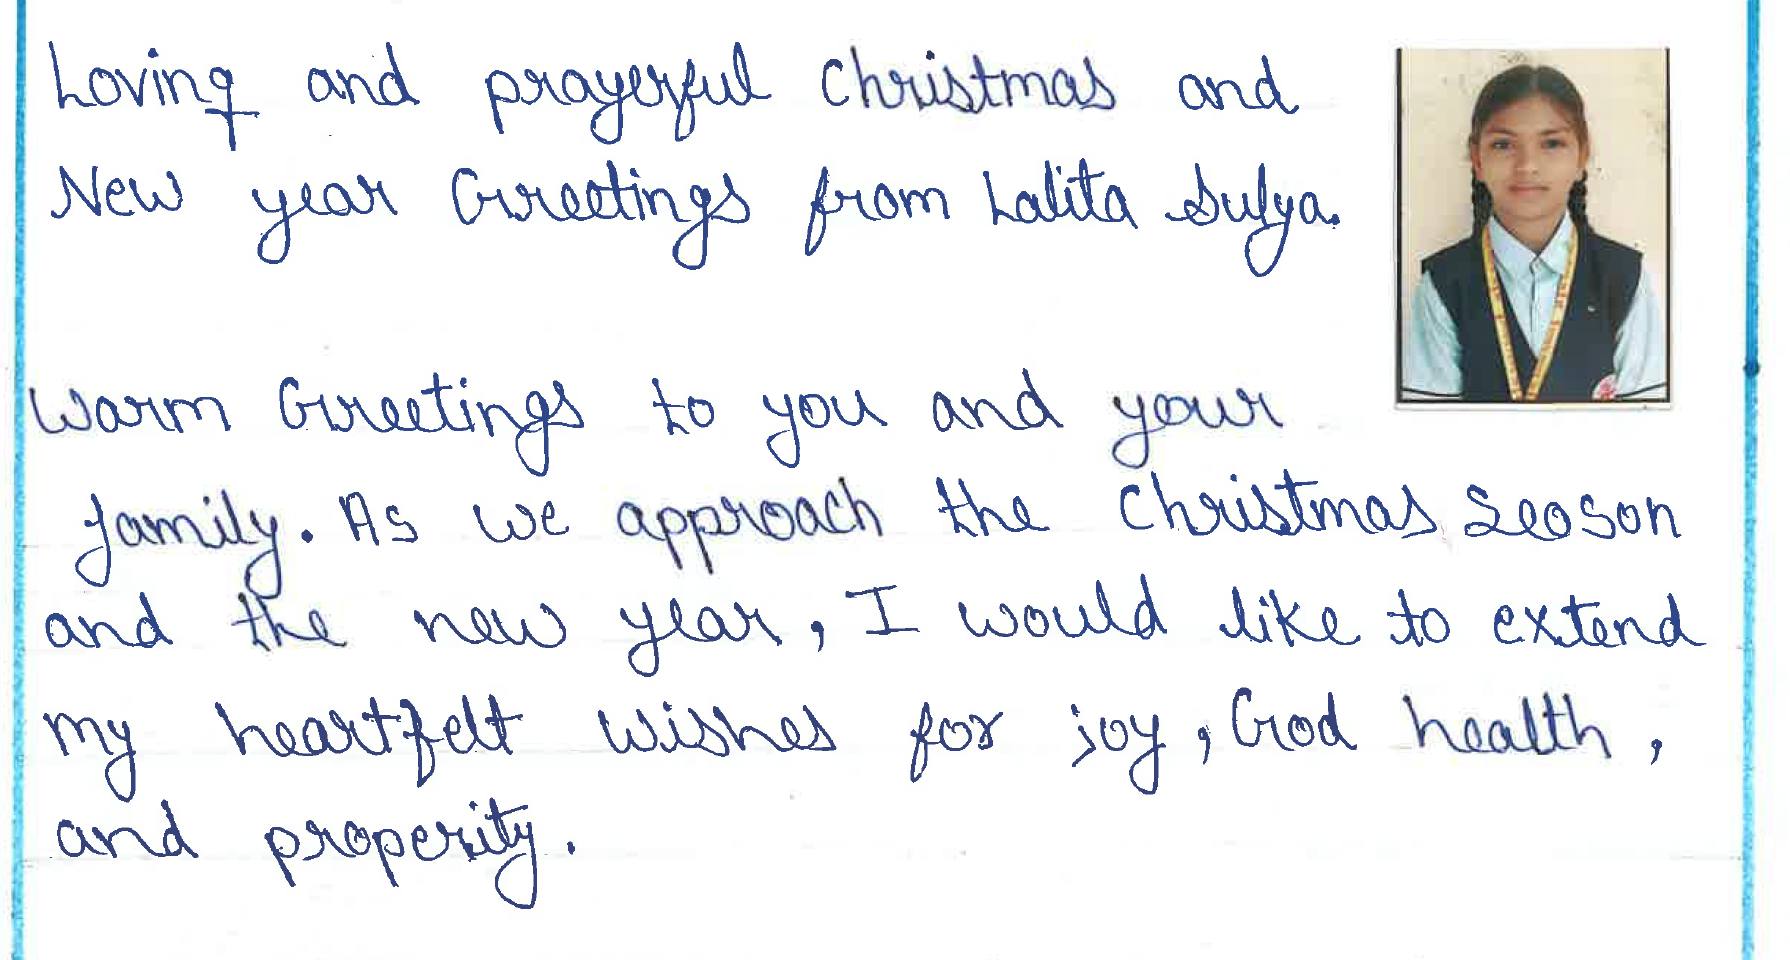 Loving and prayerful Christmas and
New year Greetings from Lalita Sulya.
Warm Greetings to you and your
family. As we approach the Christmas Season
and the new year, I would like to extend
my heartfelt wishes for joy, God health,
and properity.